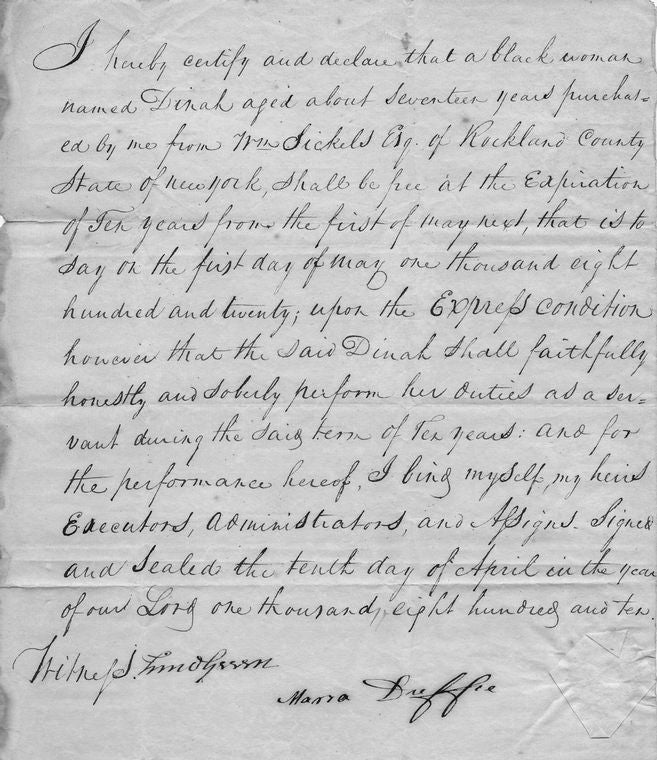 I hereby certify and declare that a black woman
named Dinah aged about seventeen years purchas=
ed by me from Wm Sickels Esq. of Rockland County
State of new york, shall be free at the Expiration
of Ten years from the first of may next, that is to
say on the first day of may one thousand eight
hundred and twenty; upon the Express condition
however that the said Dinah shall faithfully
honestly and soberly perform her duties as a ser=
vant during the said term of Ten years: and for
the performance hereof, I bind myself, my heirs
Executors, administrators, and Assigns. Signed
and Sealed the tenth day of April in the year
of our Lord one thousand, eight hundred and ten.
Witness.
Duffie